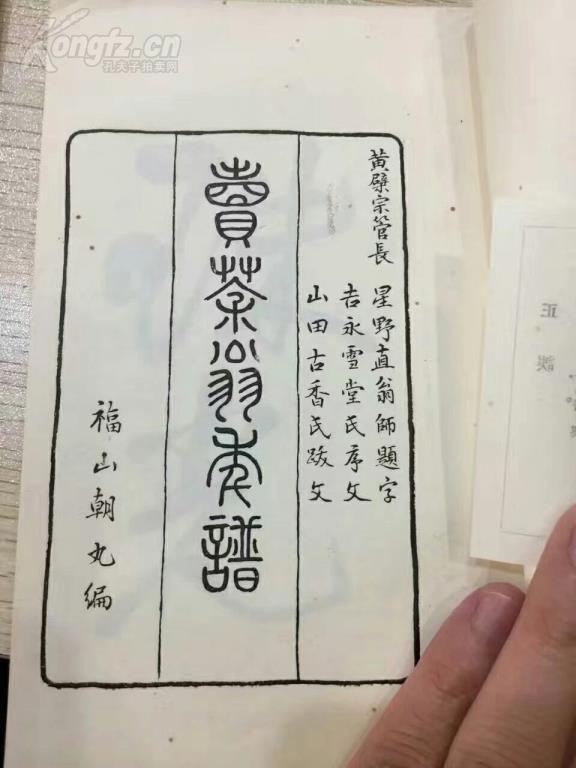 Kongfz.cn
孔夫子拍卖网
黄檗宗管長
星野直翁師題字
吉永雪堂氏序文
山田古香氏跋文
賣茶翁年譜
福山朝丸編
正誤